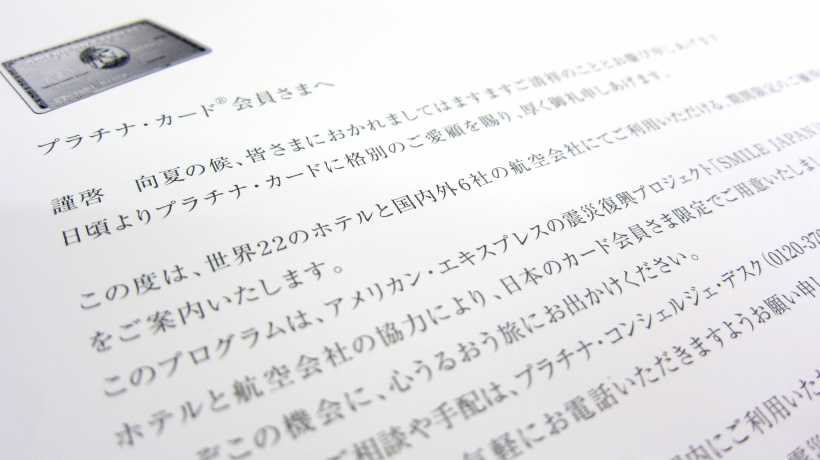 プラチナ・カード®会員さまへ
謹啓　向夏の候、皆さまにおかれましてはますますご清祥のこととお慶び申しあげます
日頃よりプラチナ・カードに格別のご愛顧を賜り、厚く御礼申しあげます。
この度は、世界22のホテルと国内外6社の航空会社にてご利用いただける、期間限定のご優待
をご案内いたします。
このプログラムは、アメリカン・エキスプレスの震災復興プロジェクト「SMILE JAPAN
ホテルと航空会社の協力により、日本のカード会員さま限定でご用意いたしまし
ぞこの機会に、心うるおう旅にお出かけください。
ご相談や手配は、プラチナ・コンシェルジェ・デスク(0120-376
気軽にお電話いただきますようお願い申し
内にご利用いただ
震災